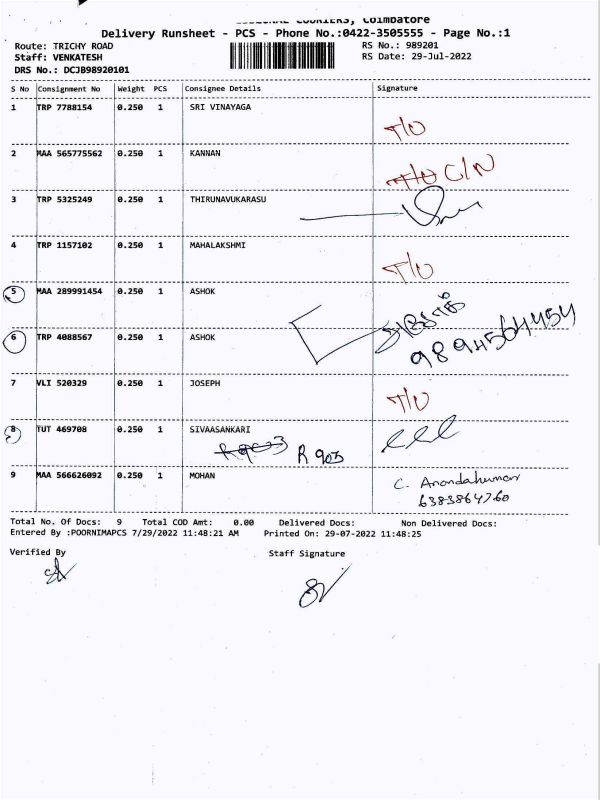 COURIERS, Coimbatore
Delivery Runsheet - PCS - Phone No.:0422-3505555 - Page No.:1
Route: TRICHY ROAD RS No.: 989201
Staff: VENKATESH RS Date: 29-Jul-2022
DRS No.: DCJB98920101
S No Consignment No Weight PCS Consignee Details Signature
1 TRP 7788154 0.250 1 SRI VINAYAGA
T/O
2 MAA 565775562 0.250 1 KANNAN
T/O C/N
3 TRP 5325249 0.250 1 THIRUNAVUKARASU
4 TRP 1157102 0.250 1 MAHALAKSHMI
T/O
5 MAA 289991454 0.250 1 ASHOK
6 TRP 4088567 0.250 1 ASHOK
9894564454
7 VLI 520329 0.250 1 JOSEPH
T/O
8 TUT 469708 0.250 1 SIVAASANKARI
R 903
9 MAA 566626092 0.250 1 MOHAN
C. Anandakumar
6383864760
Total No. Of Docs: 9 Total COD Amt: 0.00 Delivered Docs: Non Delivered Docs:
Entered By :POORNIMAPCS 7/29/2022 11:48:21 AM Printed On: 29-07-2022 11:48:25
Verified By Staff Signature